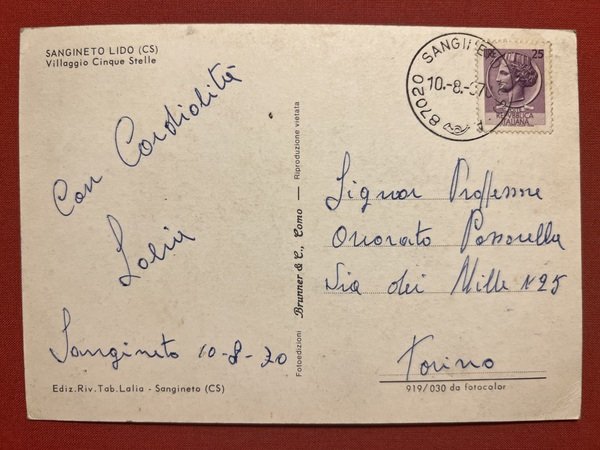 SANGINETO LIDO (CS)
Villaggio Cinque Stelle
Con Cordialità
Lalia
Sangineto 10-8-70
Ediz. Riv. Tab. Lalia - Sangineto (CS)
Fotoedizioni Brunner & C., Como — Riproduzione vietata
87020 SANGINETO
10.-8.-70
25
REPUBBLICA
ITALIANA
Signor Proffessore
Onorato Passarella
Via dei Mille N 25
Torino
919/030 da fotocolor